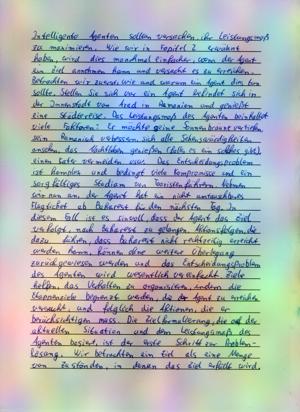 Intelligente Agenten sollen versuchen, ihr Leistungsmaß
zu maximieren. Wie wir in Kapitel 2 erwähnt
haben, wird dies manchmal einfacher, wenn der Agent
ein Ziel annehmen kann und versucht es zu erreichen.
Betrachten wir zuerst wie und warum ein Agent dies tun
sollte. Stellen Sie sich vor ein Agent befindet sich in
der Innenstadt von Arad in Rumänien und genießt
eine Städtereise. Das Leistungsmaß des Agenten beinhaltet
viele Faktoren: Er möchte seine Sonnenbräune vertiefen
sein Rumänisch verbessern, sich alle Sehenswürdigkeiten
ansehen das Nachtleben genießen (falls es ein solches gibt)
einen Kater vermeiden usw. Das Entscheidungsproblem
ist komplex und bedingt viele Kompromisse und ein
sorgfältiges Studium von Touristenführern. Nehmen
wir nun an, der Agent hat ein nicht umtauschbares
Flugticket ab Bukarest für den nächsten Tag. In
diesem Fall ist es sinnvoll dass der Agent das Ziel
verfolgt, nach Bukarest zu gelangen. Aktionsfolgen, die
dazu führen, dass Bukarest nicht rechtzeitig erreicht
werden kann, können ohne weitere Überlegung
zurückgewiesen werden und das Entscheidungsproblem
des Agenten wird wesentlich vereinfacht. Ziele
helfen, das Verhalten zu organisieren, indem die
begrenzt werden, die der Agent zu erreichen
versucht, und folglich die Aktionen, die er
berücksichtigen muss. Die Zielformulierung, die auf der
aktuellen Situation und dem Leistungsmaß des
Agenten basiert, ist der erste Schritt zur Problem-
lösung. Wir betrachten ein Ziel als eine Menge
von Zuständen, in denen das Ziel erfüllt wird.